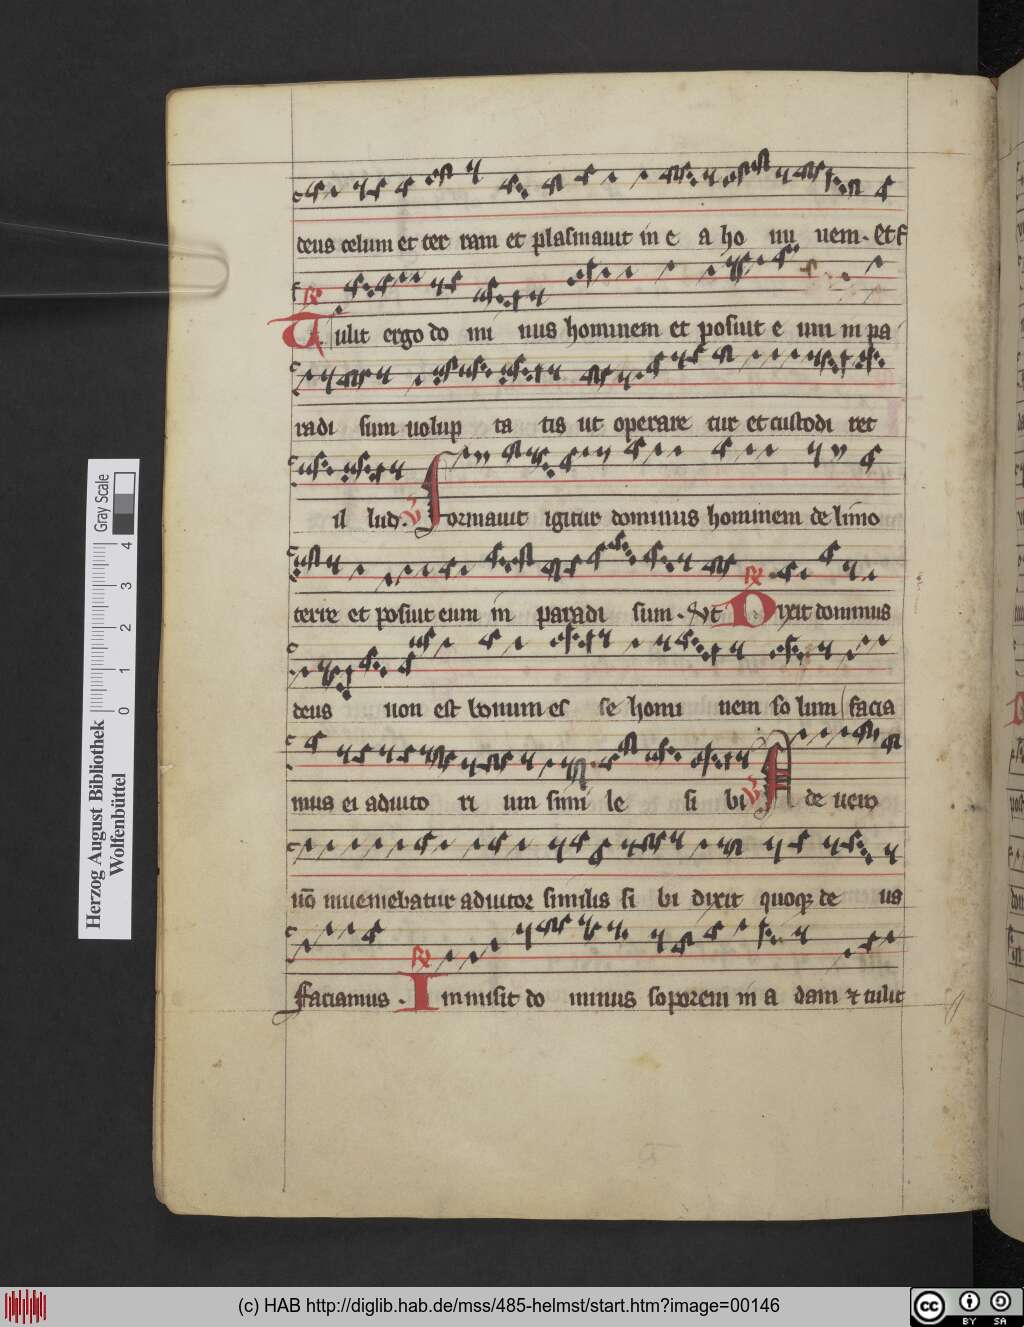 deus celum et ter ram et plasmauit in e a ho mi nem. Et f
R
Tulit ergo do mi nus hominem et posuit e um in pa
radi sum uolup ta tis ut operare tur et custodi ret
il lud. V Formauit igitur dominus hominem de limo
R
terre et posuit eum in paradi sum. Vt Dixit dominus
deus non est bonum es se homi nem so lum facia
mus ei adiuto ri um simi le si bi V Ade uero
nō inueniebatur adiutor similis si bi dixit quoq; de us
R
Faciamus. Inmisit do minus soporem in a dam et tulit
Herzog August Bibliothek
Wolfenbüttel
0 1 2 3 4
Gray Scale
(c) HAB http://diglib.hab.de/mss/485-helmst/start.htm?image=00146
cc BY SA